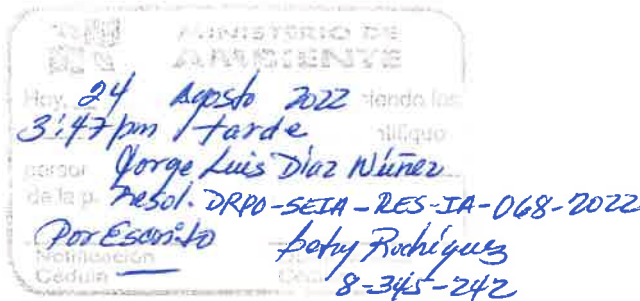 MINISTERIO DE
AMBIENTE
Hoy, 24 Agosto 2022 siendo las
3:47 pm tarde
Jorge Luis Díaz Núñez
de la Resol. DRPO-SEIA-RES-IA-068-2022
Por Escrito Betsy Rodríguez
Notificación
Cédula 8-345-242